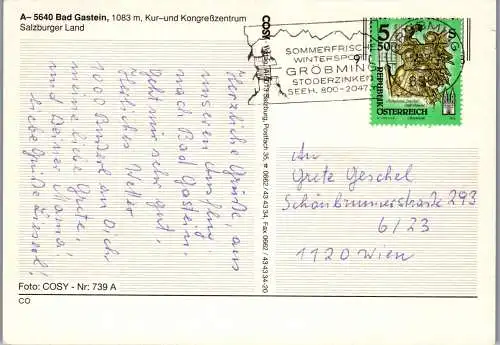 A– 5640 Bad Gastein, 1083 m, Kur–und Kongreßzentrum
Salzburger Land
Herzliche Grüße, aus
unserem Ausflug
nach Bad Gastein.
Geht mir sehr gut.
Herrliches Wetter
1000 Busserl an Dich
meine liebe Grete,
und Deiner Mama
liebe Grüße Liesserl!
Foto: COSY - Nr: 739 A
CO
COSY
Salzburg, Postfach 35, 0662 / 43 43 34, Fax 0662 / 43 43 34-20
SOMMERFRISCHE
WINTERSPORT
GRÖBMING
STODERZINKEN
SEEH. 800-2047
5 50
REPUBLIK
ÖSTERREICH
An
Grete Geschel
Schönbrunnerstraße 293
6/23
1120 Wien